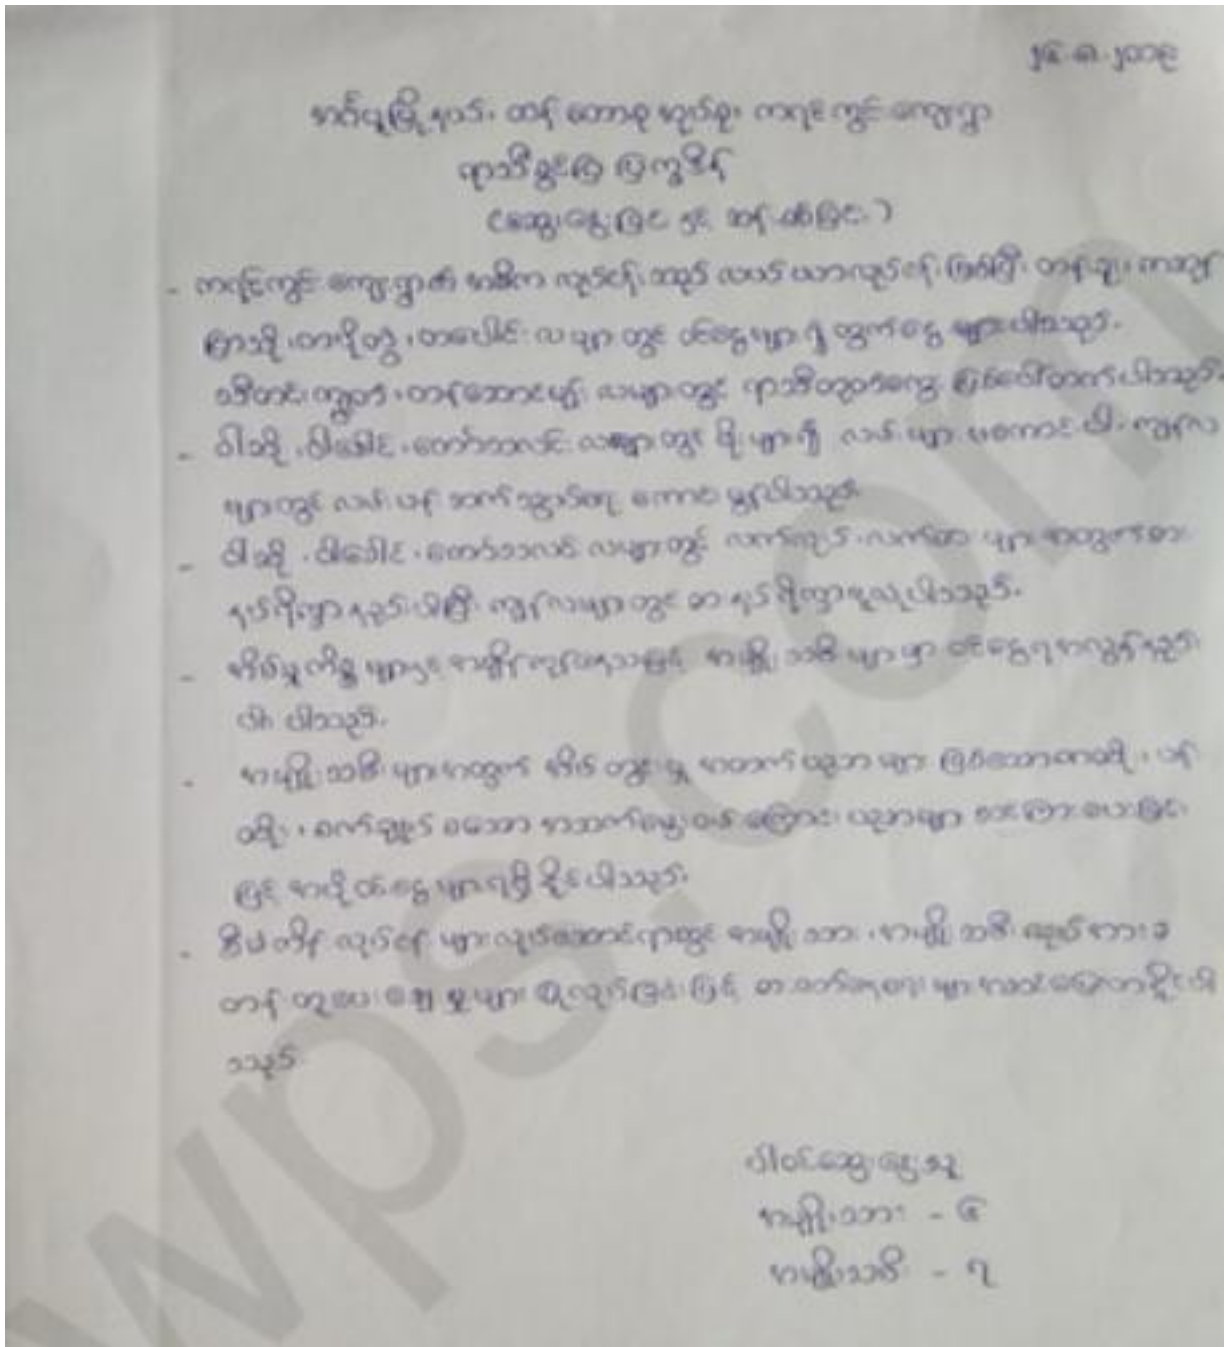 ၂၄-၈-၂၀၁၉
အင်္ဂပူမြို့နယ်၊ ထန်းတောစုအုပ်စု၊ ကရင်ကွင်းကျေးရွာ
ရာသီခွင်ပြ ပြက္ခဒိန်
(ဆွေးနွေးခြင်းနှင့် ဆန်းစစ်ခြင်း)
- ကရင်ကွင်းကျေးရွာ၏ အဓိက လုပ်ငန်းသည် လယ်ယာလုပ်ငန်းဖြစ်ပြီး တန်ခူး၊ ကဆုန်
ပြာသို၊ တပို့တွဲ၊ တပေါင်းလများတွင် ဝင်ငွေများ၍ ထွက်ငွေများပါသည်။
သီတင်းကျွတ်၊ တန်ဆောင်မုန်းလများတွင် ရာသီတုပ်ကွေး ဖြစ်ပေါ်တတ်ပါသည်။
- ဝါဆို၊ ဝါခေါင်၊ တော်သလင်းလများတွင် မိုးများ၍ လမ်းများမကောင်းပါ။ ကျန်လ
များတွင် လမ်းပန်းဆက်သွယ်ရေး ကောင်းမွန်ပါသည်။
- ဝါဆို၊ ဝါခေါင်၊ တော်သလင်းလများတွင် လက်လုပ်လက်စားများအတွက်စား
နပ်ရိက္ခာနည်းပါးပြီး ကျန်လများတွင် စားနပ်ရိက္ခာဖူလုံပါသည်။
- အိမ်မှုကိစ္စများနှင့် အချိန်ကုန်နေသဖြင့် အမျိုးသမီးများမှာ ဝင်ငွေရအလွန်နည်း
ပါးပါသည်။
- အမျိုးသမီးများအတွက် အိမ်တွင်းမှု အတတ်ပညာများ ဖြစ်သော ဇာထိုး၊ ပန်း
ထိုး၊ စက်ချုပ် စသော အသက်မွေးဝမ်းကြောင်းပညာများ သင်ကြားပေးခြင်း
ဖြင့် အပိုဝင်ငွေများရရှိနိုင်ပါသည်။
- စီမံကိန်းလုပ်ငန်းများလုပ်ဆောင်ရာတွင် အမျိုးသား၊ အမျိုးသမီး လုပ်အားခ
တန်းတူပေးချေမှုများ ပြုလုပ်ခြင်းဖြင့် စားဝတ်နေရေးများအဆင်ပြေလာနိုင်ပါ
သည်
ပါဝင်ဆွေးနွေးသူ
အမျိုးသား - ၆
အမျိုးသမီး - ၇
wps.com